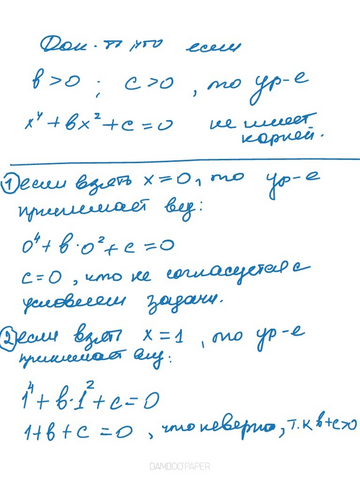 Док-ть что если
b>0 ; c>0 , то ур-е
x⁴+bx²+c=0 не имеет
корней.
① если взять x=0, то ур-е
принимает вид:
0⁴+b·0²+c=0
c=0, что не согласуется с
условием задачи.
② если взять x=1, то ур-е
принимает вид:
1⁴+b·1²+c=0
1+b+c=0, что неверно, т.к b+c>0
BAMBOO PAPER